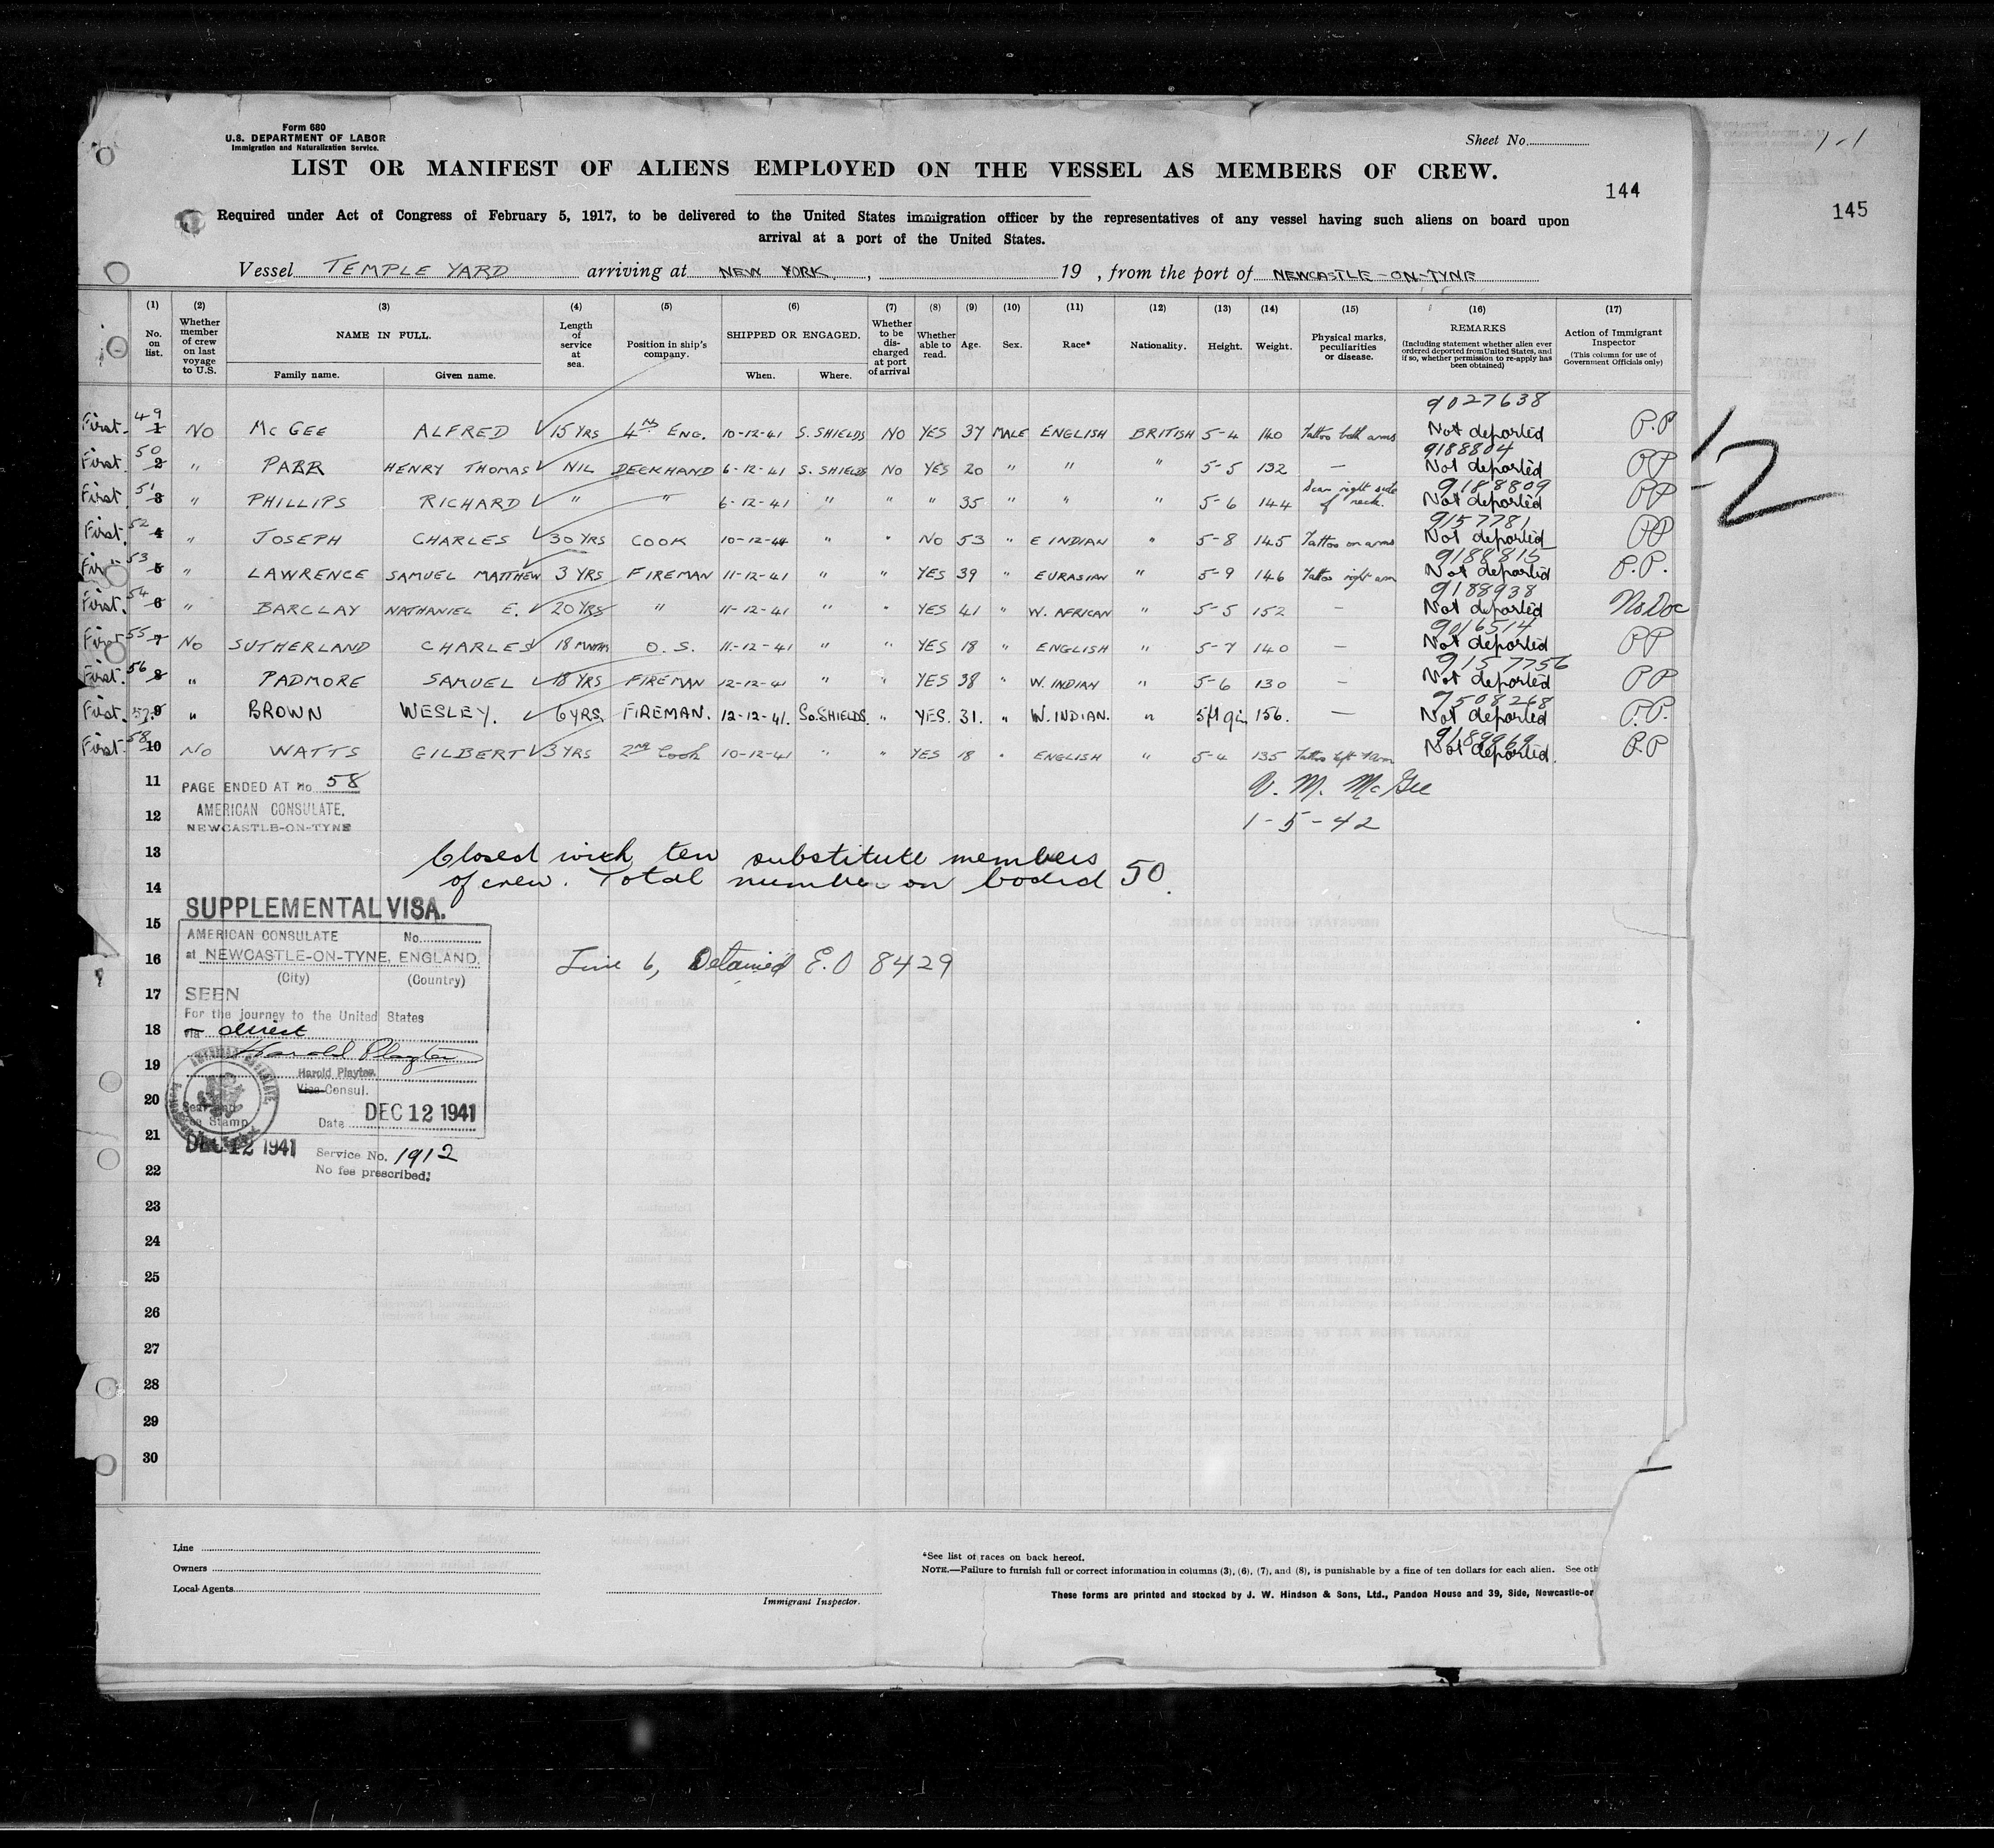 Form 680
U.S. DEPARTMENT OF LABOR
Immigration and Naturalization Service.
Sheet No.
LIST OR MANIFEST OF ALIENS EMPLOYED ON THE VESSEL AS MEMBERS OF CREW.
144
145
Required under Act of Congress of February 5, 1917, to be delivered to the United States immigration officer by the representatives of any vessel having such aliens on board upon
arrival at a port of the United States.
Vessel TEMPLE YARD arriving at NEW YORK, , 19 , from the port of NEWCASTLE-ON-TYNE
(1) No. on list.
(2) Whether member of crew on last voyage to U.S.
(3) NAME IN FULL. Family name. Given name.
(4) Length of service at sea.
(5) Position in ship's company.
(6) SHIPPED OR ENGAGED. When. Where.
(7) Whether to be discharged at port of arrival
(8) Whether able to read.
(9) Age.
(10) Sex.
(11) Race*
(12) Nationality.
(13) Height.
(14) Weight.
(15) Physical marks, peculiarities or disease.
(16) REMARKS (Including statement whether alien ever ordered deported from United States, and if so, whether permission to re-apply has been obtained)
(17) Action of Immigrant Inspector (This column for use of Government Officials only)
9027638
First. 49 1 NO McGEE ALFRED 15 YRS 4TH ENG. 10-12-41 S. SHIELDS NO YES 37 MALE ENGLISH BRITISH 5-4 140 Tattoo both arms Not deported P.P
9188804
First. 50 2 " PARR HENRY THOMAS NIL DECKHAND 6-12-41 S. SHIELDS NO YES 20 " " " 5-5 132 — Not deported PP
9188809
First. 51 3 " PHILLIPS RICHARD " " 6-12-41 " " " 35 " " " 5-6 144 Scar right side of neck. Not deported PP
9157781
First. 52 4 " JOSEPH CHARLES 30 YRS COOK 10-12-41 " " NO 53 " E INDIAN " 5-8 145 Tattoo on arms Not deported PP
9188815
First 53 5 " LAWRENCE SAMUEL MATTHEW 3 YRS FIREMAN 11-12-41 " " YES 39 " EURASIAN " 5-9 146 Tattoo right arm Not deported P.P.
9188938
First. 54 6 " BARCLAY NATHANIEL E. 20 YRS " 11-12-41 " " YES 41 " W. AFRICAN " 5-5 152 — Not deported No Doc
9016514
First 55 7 NO SUTHERLAND CHARLES 18 MNTHS O. S. 11-12-41 " " YES 18 " ENGLISH " 5-7 140 — Not deported PP
9157756
First. 56 8 " PADMORE SAMUEL 18 YRS FIREMAN 12-12-41 " " YES 38 " W. INDIAN " 5-6 130 — Not deported PP
9508268
First. 57. 9 " BROWN WESLEY. 6 YRS. FIREMAN. 12-12-41. So. SHIELDS. " YES. 31. " W. INDIAN. " 5ft 9in 156. — Not deported P.P.
9189969
First. 58 10 NO WATTS GILBERT 3 YRS 2nd Cook 10-12-41 " " YES 18 " ENGLISH " 5-4 135 Tattoo left arm Not deported. P.P
11 PAGE ENDED AT No 58 V. M. McGee
12 AMERICAN CONSULATE, 1-5-42
NEWCASTLE-ON-TYNE
13 Closed with ten substitute members
14 of crew. Total number on board 50.
SUPPLEMENTAL VISA.
15 AMERICAN CONSULATE No.
16 at NEWCASTLE-ON-TYNE, ENGLAND. Line 6, Detained E.O 8429
(City) (Country)
17 SEEN
For the journey to the United States
18 via direct
Harold Playter
19 Harold Playter.
Vice Consul.
20 Date DEC 12 1941
21 DEC 12 1941 Service No. 1912
22 No fee prescribed.
23
24
25
26
27
28
29
30
Line
Owners
Local Agents
Immigrant Inspector.
*See list of races on back hereof.
NOTE.—Failure to furnish full or correct information in columns (3), (6), (7), and (8), is punishable by a fine of ten dollars for each alien. See
These forms are printed and stocked by J. W. Hindson & Sons, Ltd., Pandon House and 39, Side,